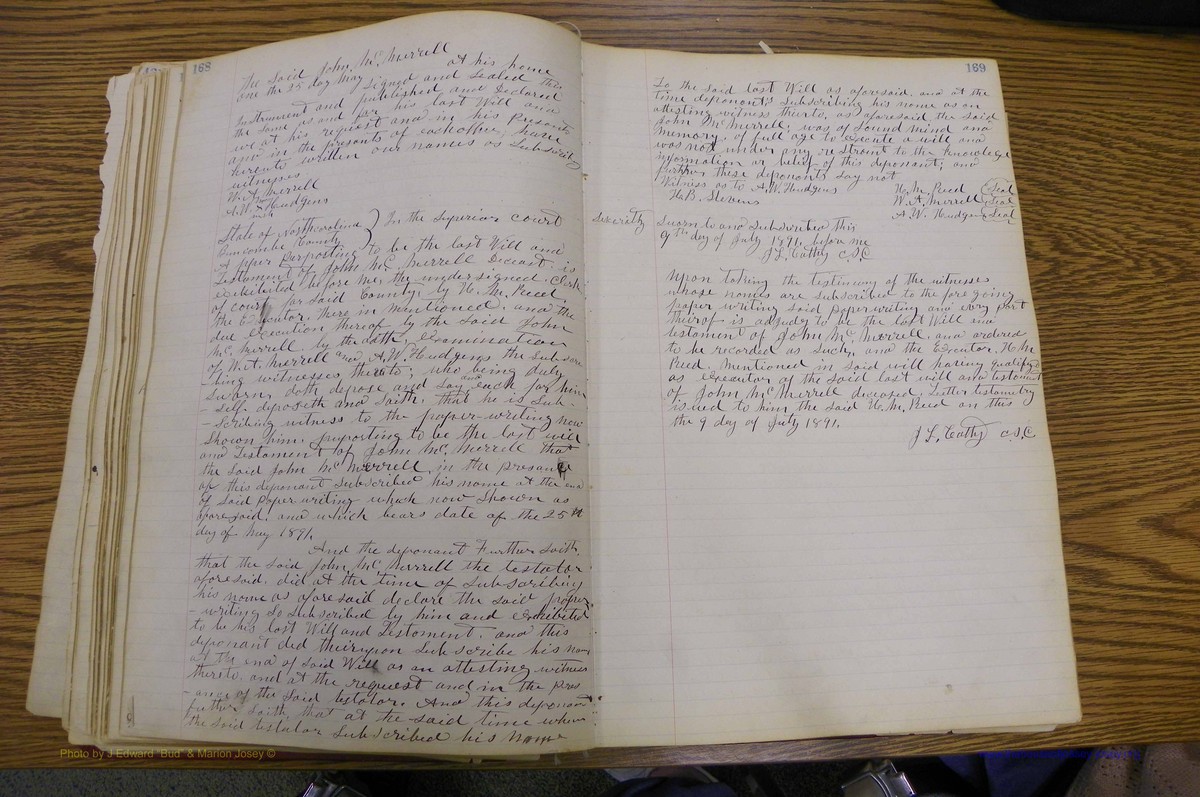 168
The Said John Mc Merrell at his home
one the 25 day May signed and Sealed this
Instrument and published and Declared
the same as and for his last Will and
we at his request and in his Presents
and in the presents of eachother, have
hereto written our names as Subscrib
witnesses
W. A. Merrell
A. W. X Hudgens
State of North Carolina ) In the Superior court
Buncombe County
A paper purporting to be the last Will and
Testament of John Mc. Merrell Deceast, is
exhibited before me, the undersigned, Clerk
of court for said County, by H. M. Reed
the Executor, there in mentioned, and the
due execution thereof by the said John
Mc. Merrell. by the oath, Examination
of W. A. Merrell and A. W. Hudgens, the subscre
-bing witnesses thereto; who being duly
sworn, doth depose and say and each for him
-self deposeth and saith, that he is Sub
-scribing witness to the paper-writing now
shown him, purporting to be the last will
and Testament of John Mc. Merrell that
the said John Mc Merrell, in the presance
of this deponant Subscribed his name at the end
of said paper writing which now Shown as
aforesaid, and which bears date of the 25th
day of May 1891
And the deponant Further saith,
that the said John Mc Merrell the testator
aforesaid, did at the time of subscribing
his name as aforesaid declare the said paper
-writing so subscribed by him and Exhibited
to be his last Will and Testament. and this
deponant did theirupon Subscribe his name
at the end of said Will as an attesting witness
thereto, and at the request and in the pres
-ance of the said testator. And this deponant
further saith, that at the said time when
the said testator Subscribed his name
169
To the said last Will as aforesaid, and at the
time deponants Subscribing his name as an
attesting witness thereto, as aforesaid the said
John Mc Merrell, was of Sound mind and
Memory, of full age to execute a will and
was not under any restraint to the knowledge
information or belief of this deponant; and
further these deponants say not
Witness as to A. W. Hudgens H. M. Reed (Seal)
H. B. Stevens W. A. Merrell (Seal)
A. W. Hudgens Seal
Severelty Sworn to and Subscribed this
9th day of July 1891. before me
J. L. Cathy C.S.C
Upon taking the testimony of the witnesses
whose names are subscribed to the foregoing
paper writing said paper writing and evry part
therof is adjudg to be the last Will and
testament of John Mc. Merrell. and ordered
to be recorded as such, and the Executor, H. M
Reed. mentioned in said will having qualified
as executor of the said last will and testament
of John Mc Merrell deceased. Letter testametry
issued to him the said H. M. Reed on this
the 9 day of July 1891.
J. L. Cathy C.S.C.
Photo by J Edward "Bud" & Marion Josey ©